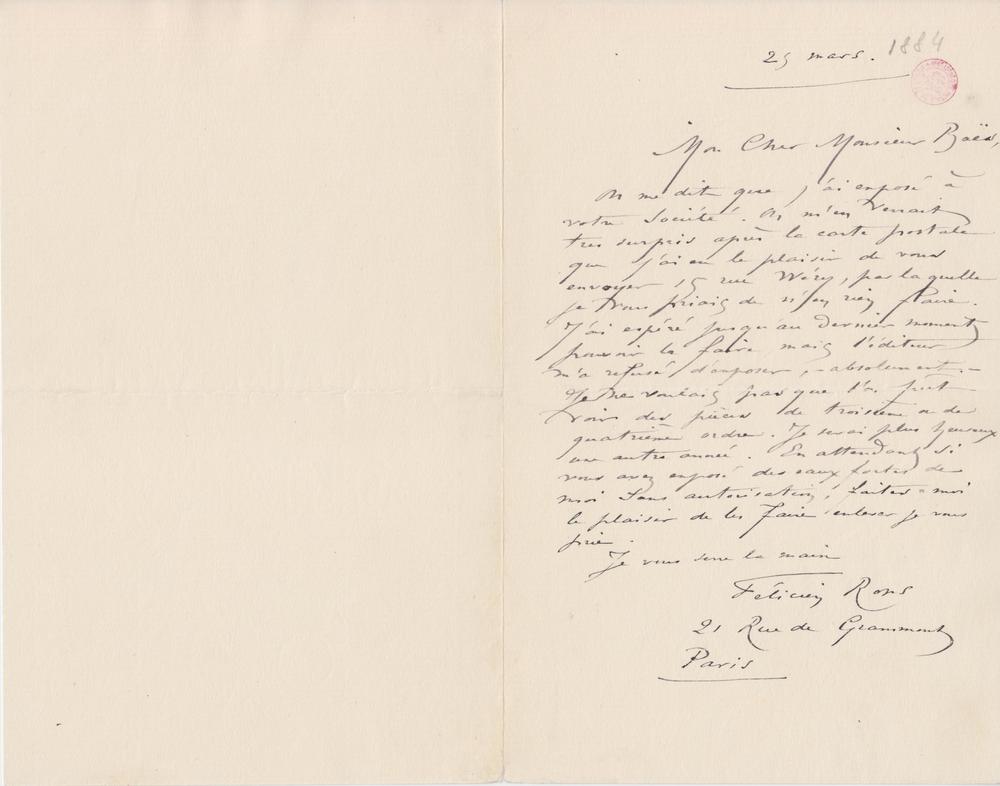 25 mars. 1884
Mon Cher Monsieur Baës,
On me dit que j'ai exposé à
votre Société. On m'en verrait
très surpris après la carte postale
que j'ai eu le plaisir de vous
envoyer 15 rue Wéry, par laquelle
je vous priais de n'en rien faire.
J'ai espéré jusqu'au dernier moment
pouvoir le faire mais l'éditeur
m'a refusé d'exposer, - absolument. -
Je ne voulais pas que l'on fît
voir des pièces de troisième ou de
quatrième ordre. Je serai plus heureux
une autre année. En attendant si
vous avez exposé des eaux fortes de
moi sans autorisation, faites-moi
le plaisir de les faire enlever je vous
prie.
Je vous serre la main
Félicien Rops
21 Rue de Grammont
Paris